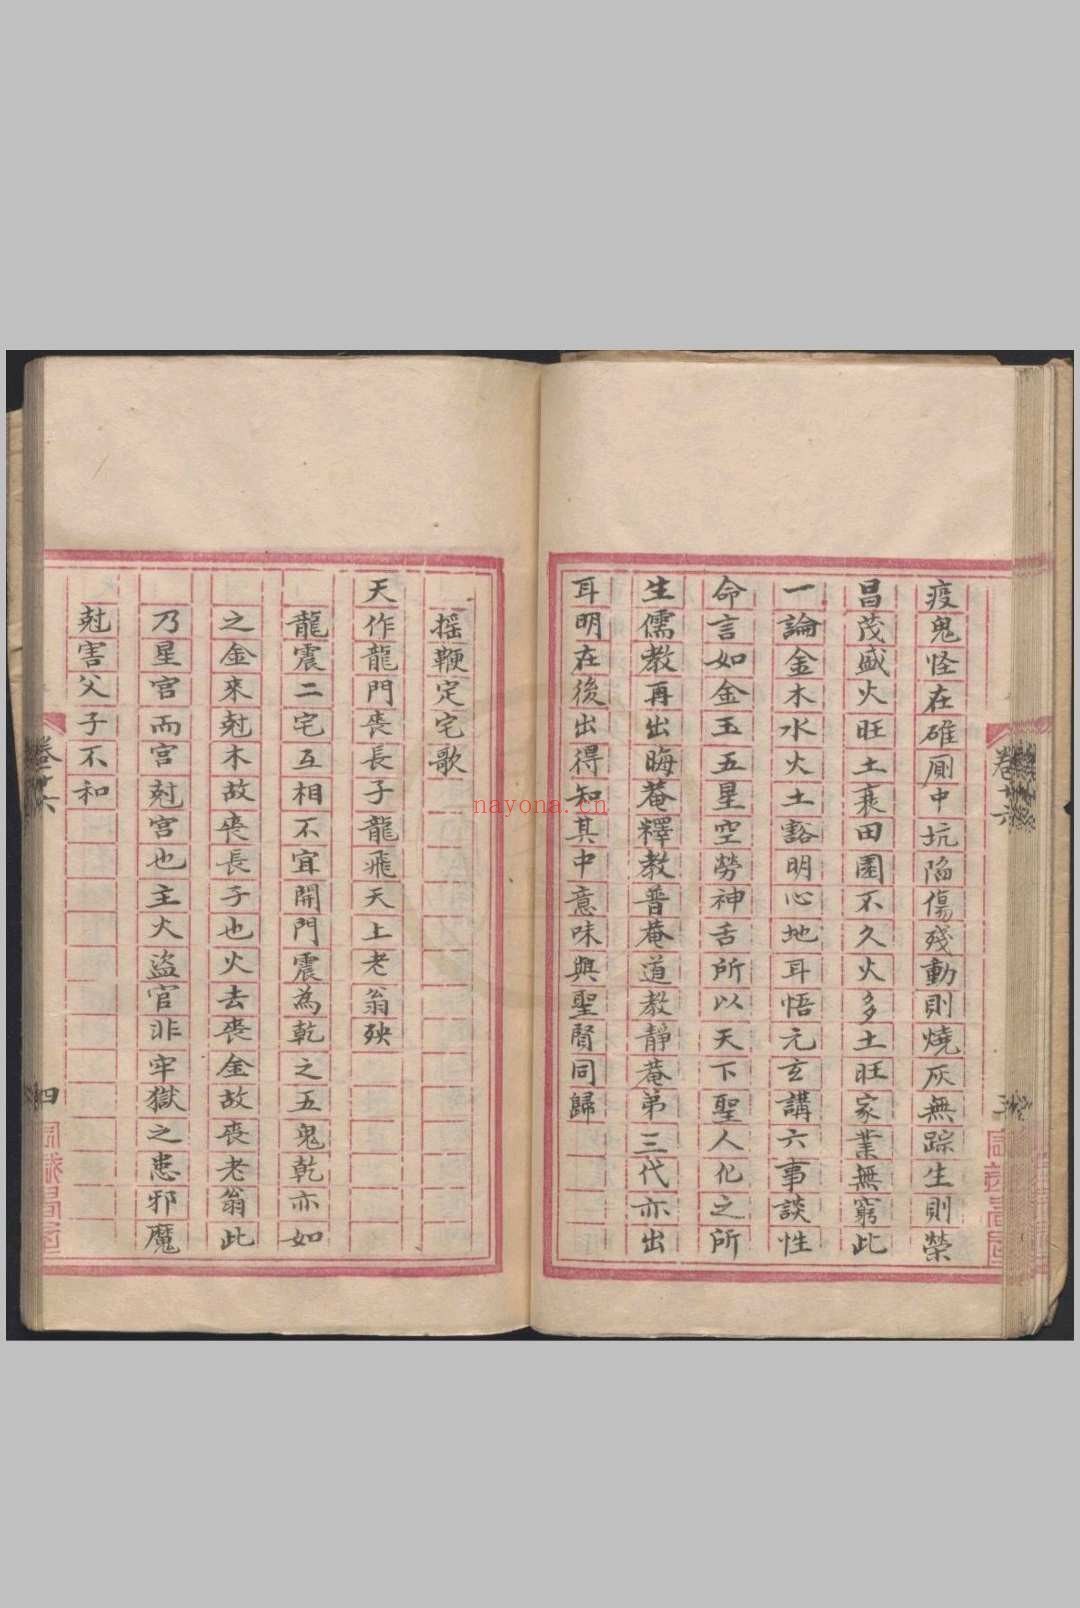 疫鬼怪在碓厠中坑陷傷殘動則燒灰無踪生則榮
昌茂盛火旺土衰田園不久火多土旺家業無窮此
一論金木水火土豁明心地耳悟元玄講六事談性
命言如金玉五星空勞神舌所以天下聖人化之所
生儒教再出晦菴釋教普菴道教靜菴弟三代亦出
耳明在後出得知其中意味與聖賢同歸
卷廿六
搖鞭定宅歌
天作龍門喪長子龍飛天上老翁殃
龍震二宅互相不宜開門震為乾之五鬼乾亦如
之金來尅木故喪長子也火去喪金故喪老翁此
乃星宮而宮尅宮也主火盜官非牢獄之患邪魔
尅害父子不和
卷廿六
四
nayona.cn